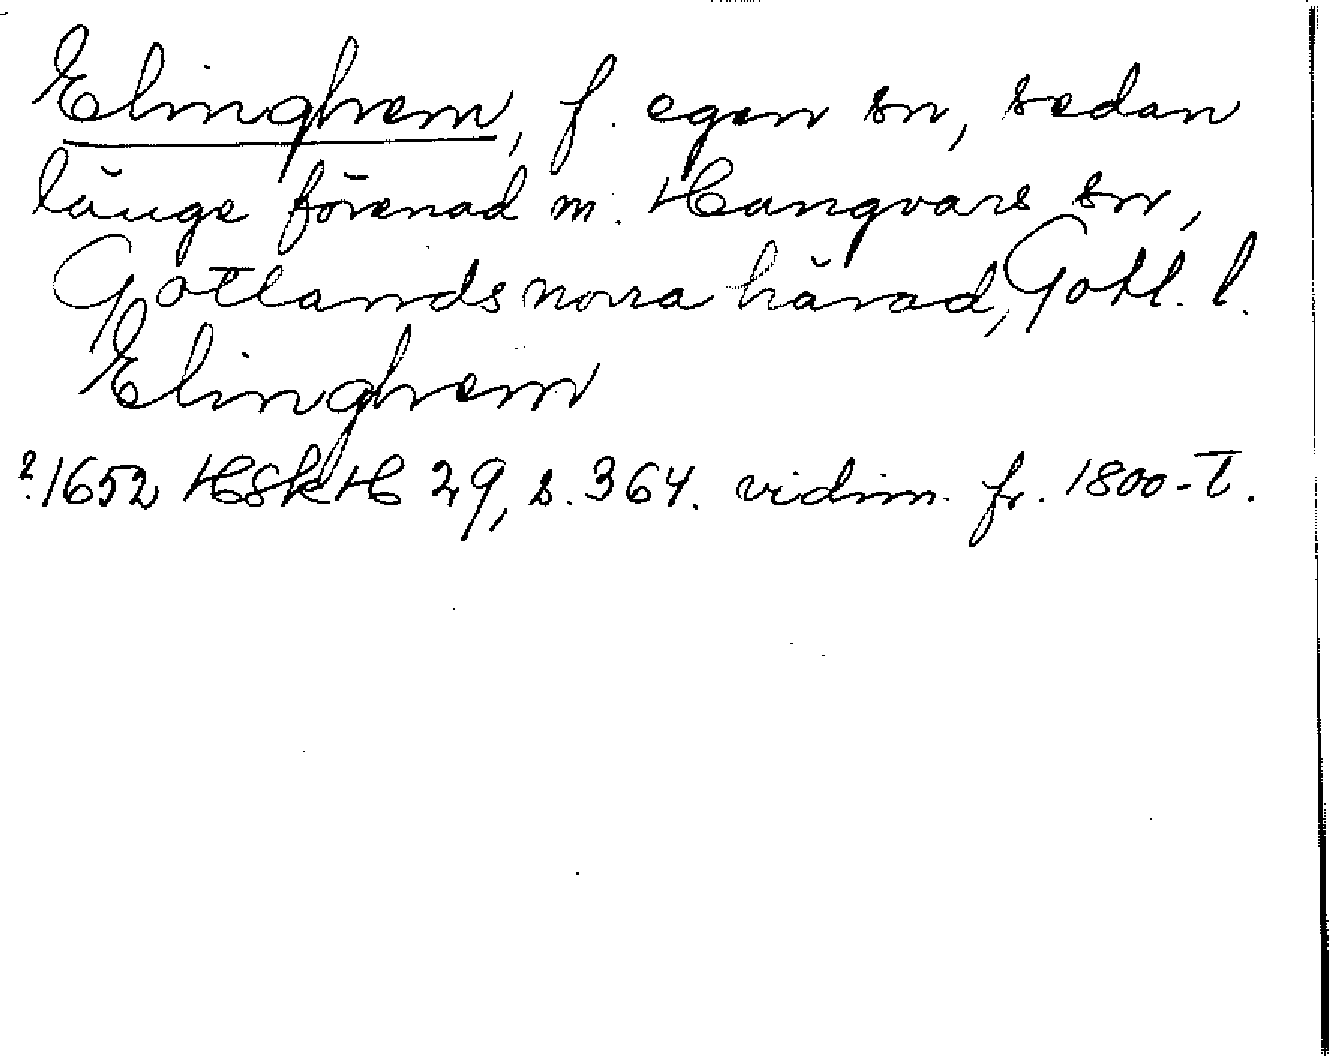 Elinghem, f. egen sn, sedan
länge förenad m. Hangvars sn,
Gotlands norra härad, Gotl. l.
Elinghem
?1652 HSkH 29, s. 364. vidim. fr. 1800-t.